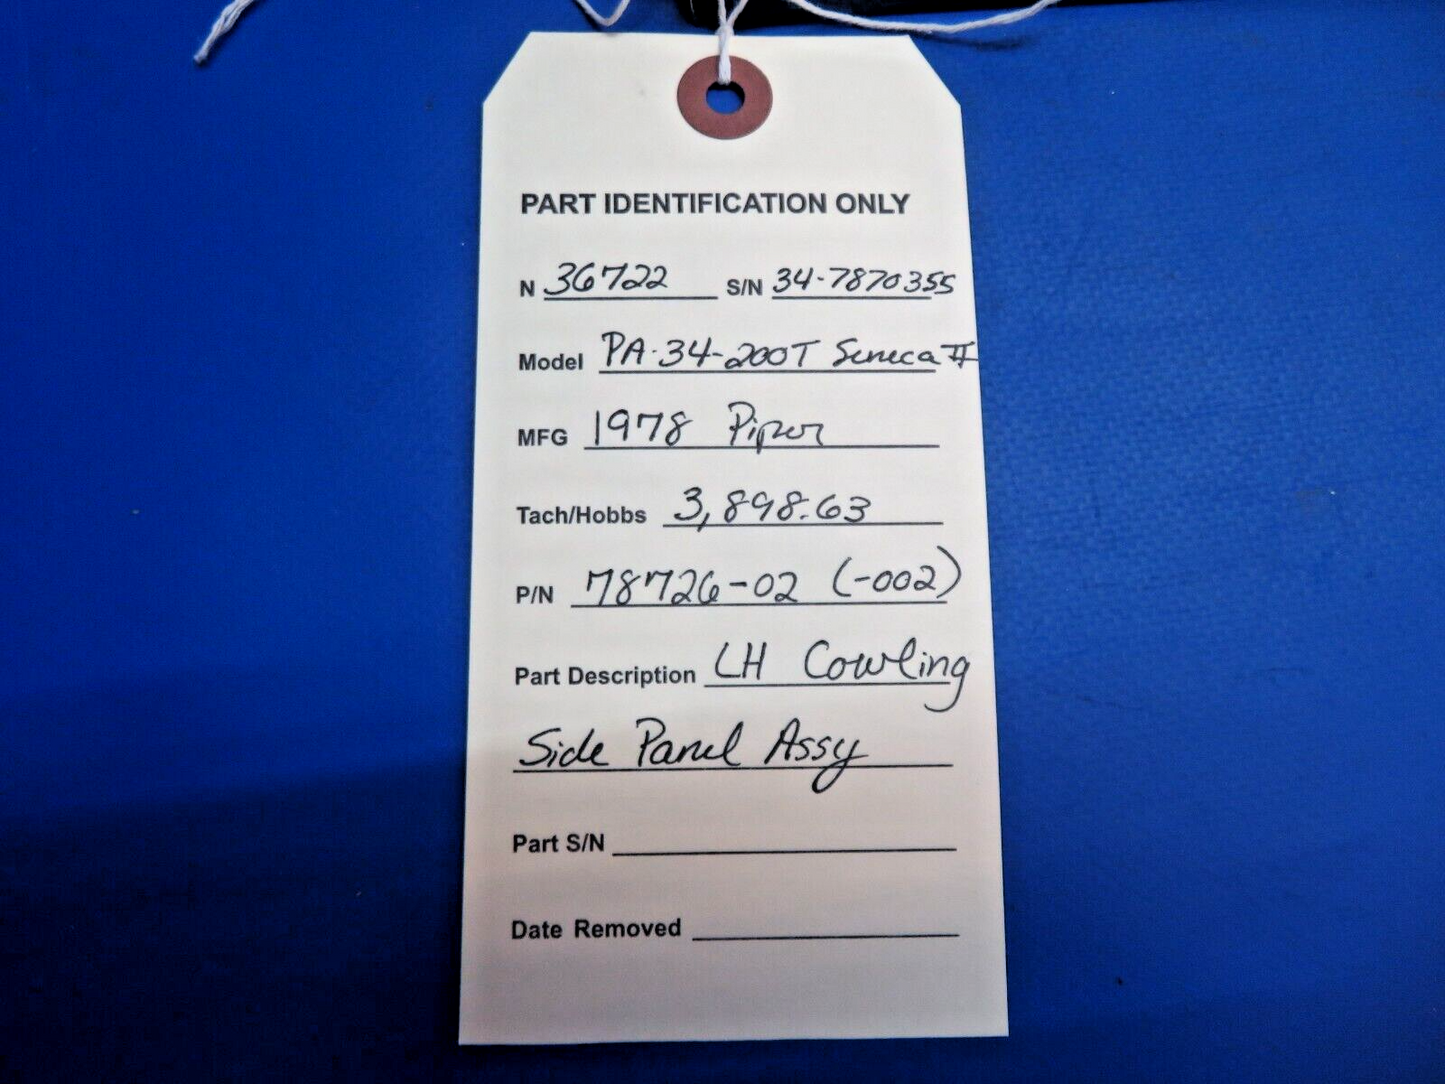 PART IDENTIFICATION ONLY
N 36722 S/N 34-7870355
Model PA-34-200T Seneca II
MFG 1978 Piper
Tach/Hobbs 3,898.63
P/N 78726-02 (-002)
Part Description LH Cowling
Side Panel Assy
Part S/N
Date Removed